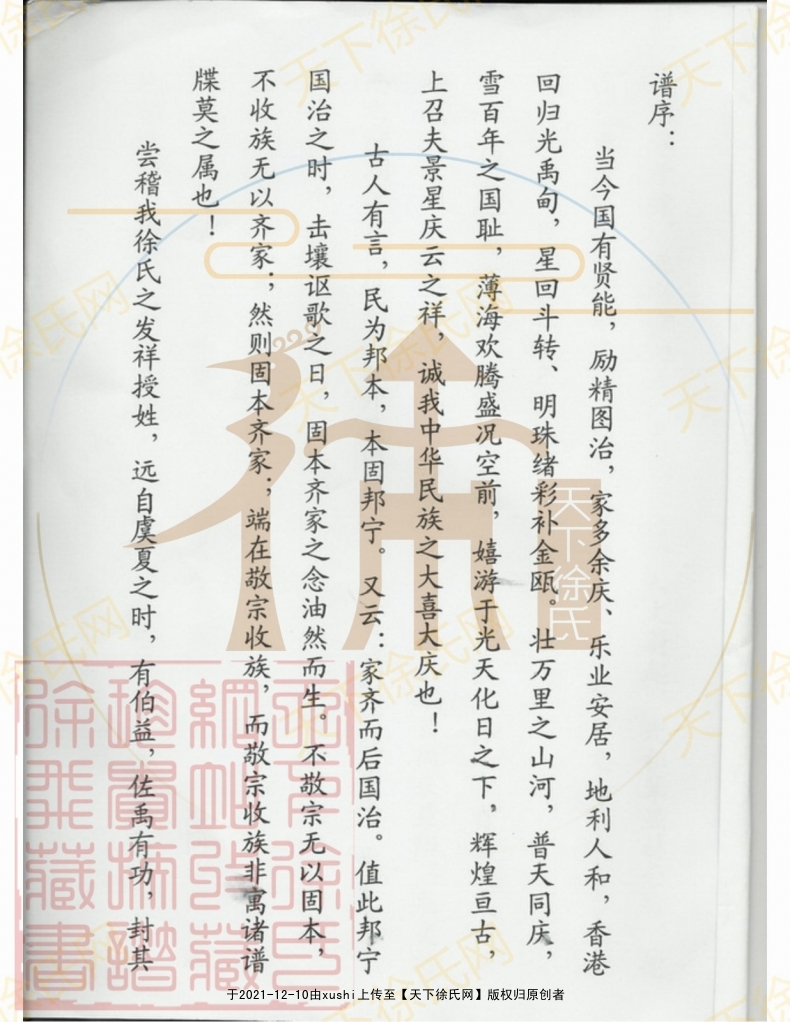 谱序：
当今国有贤能，励精图治，家多余庆、乐业安居，地利人和，香港
回归光禹甸，星回斗转、明珠绪彩补金瓯。壮万里之山河，普天同庆，
雪百年之国耻，薄海欢腾盛况空前，嬉游于光天化日之下，辉煌亘古，
上召夫景星庆云之祥，诚我中华民族之大喜大庆也！
古人有言，民为邦本，本固邦宁。又云：家齐而后国治。值此邦宁
国治之时，击壤讴歌之日，固本齐家之念油然而生。不敬宗无以固本，
不收族无以齐家；然则固本齐家；端在敬宗收族，而敬宗收族非寓诸谱
牒莫之属也！
尝稽我徐氏之发祥授姓，远自虞夏之时，有伯益，佐禹有功，封其
天下徐氏
天下徐氏网
于2021-12-10由xushi上传至【天下徐氏网】版权归原创者